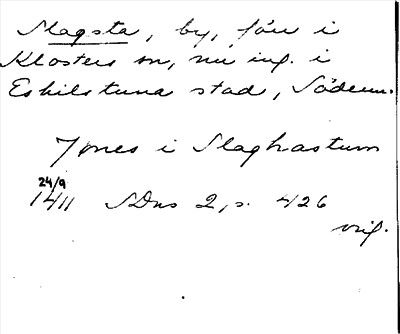 Slagsta, by, förr i
Klosters sn, nu ing. i
Eskilstuna stad, Söderm.
Jones i Slaghastum
24/9
1411 SDns 2, s. 426
orig.